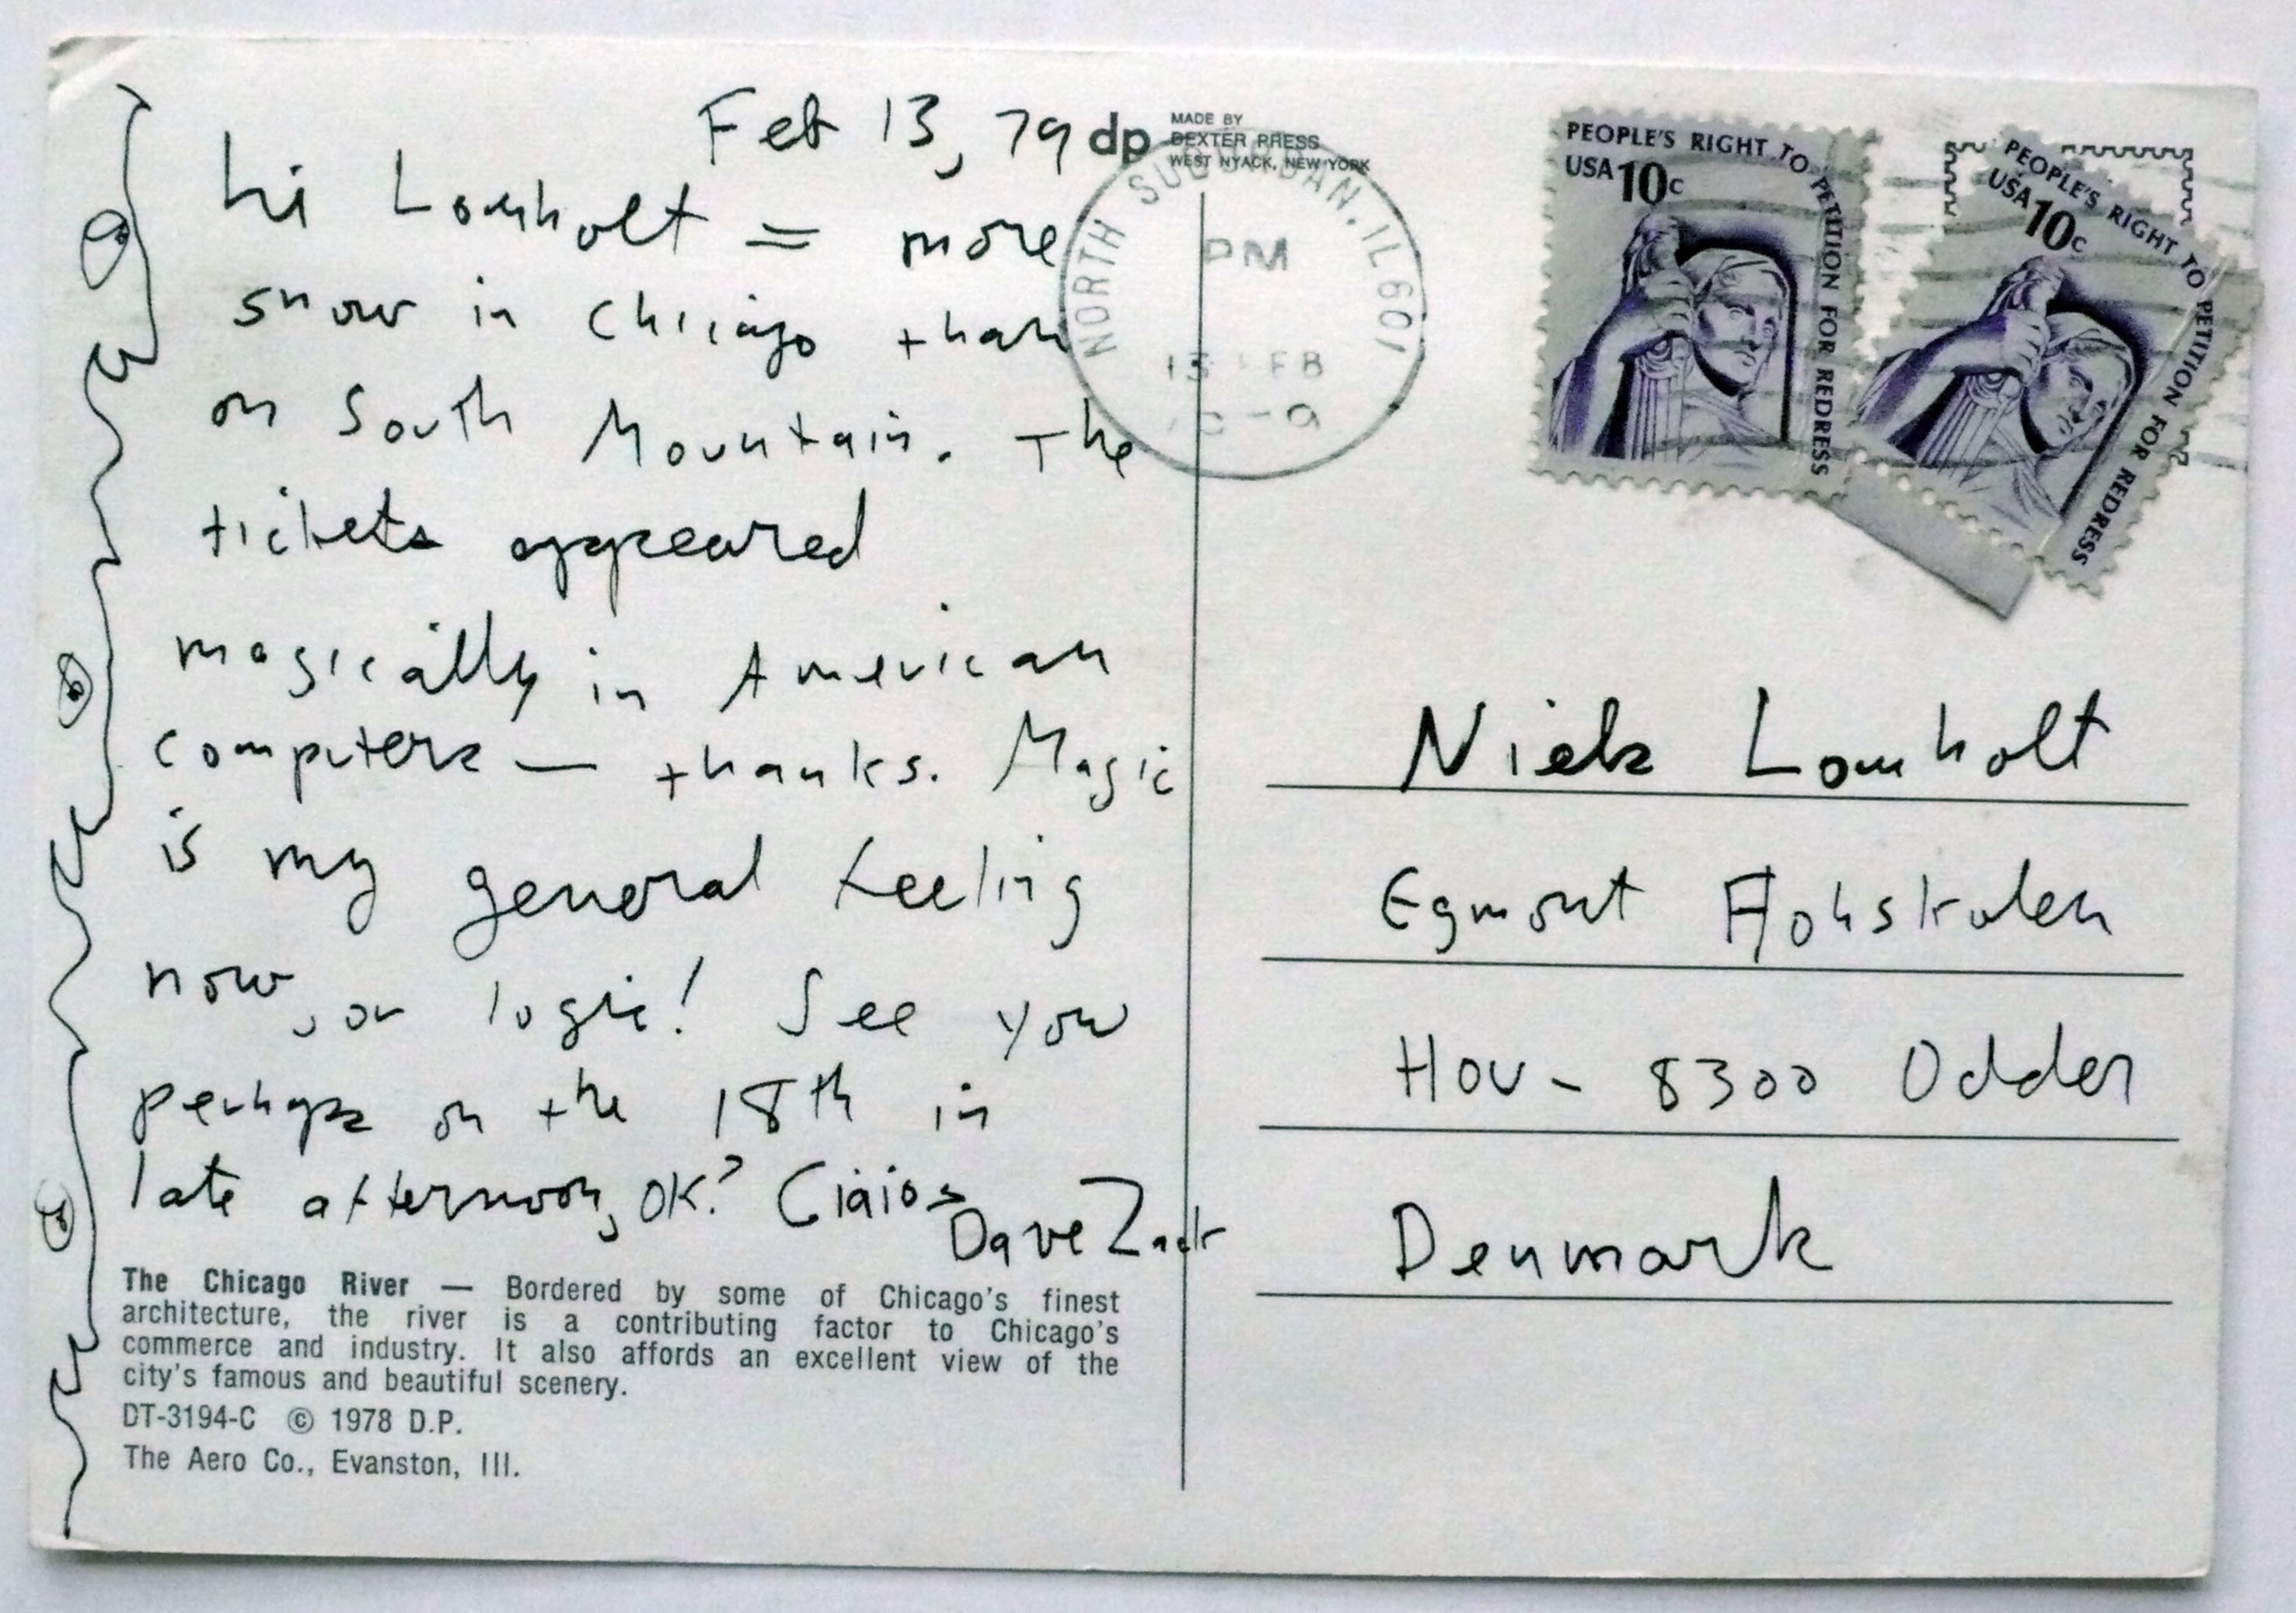 Feb 13, 79
hi Lomholt = more
snow in Chicago than
on South Mountain. The
tickets appeared
magically in American
computers — thanks. Magic
is my general feeling
now, or logic! See you
perhaps on the 18th in
late afternoon, OK? Ciaio
Dave Zack
The Chicago River — Bordered by some of Chicago's finest
architecture, the river is a contributing factor to Chicago's
commerce and industry. It also affords an excellent view of the
city's famous and beautiful scenery.
DT-3194-C © 1978 D.P.
The Aero Co., Evanston, Ill.
dp
MADE BY
DEXTER PRESS
WEST NYACK, NEW YORK
NORTH SUBURBAN, IL 601
PM
13 FEB
PEOPLE'S RIGHT TO PETITION FOR REDRESS
USA 10c
PEOPLE'S RIGHT TO PETITION FOR REDRESS
USA 10c
Niels Lomholt
Egmont Højskolen
Hov - 8300 Odder
Denmark